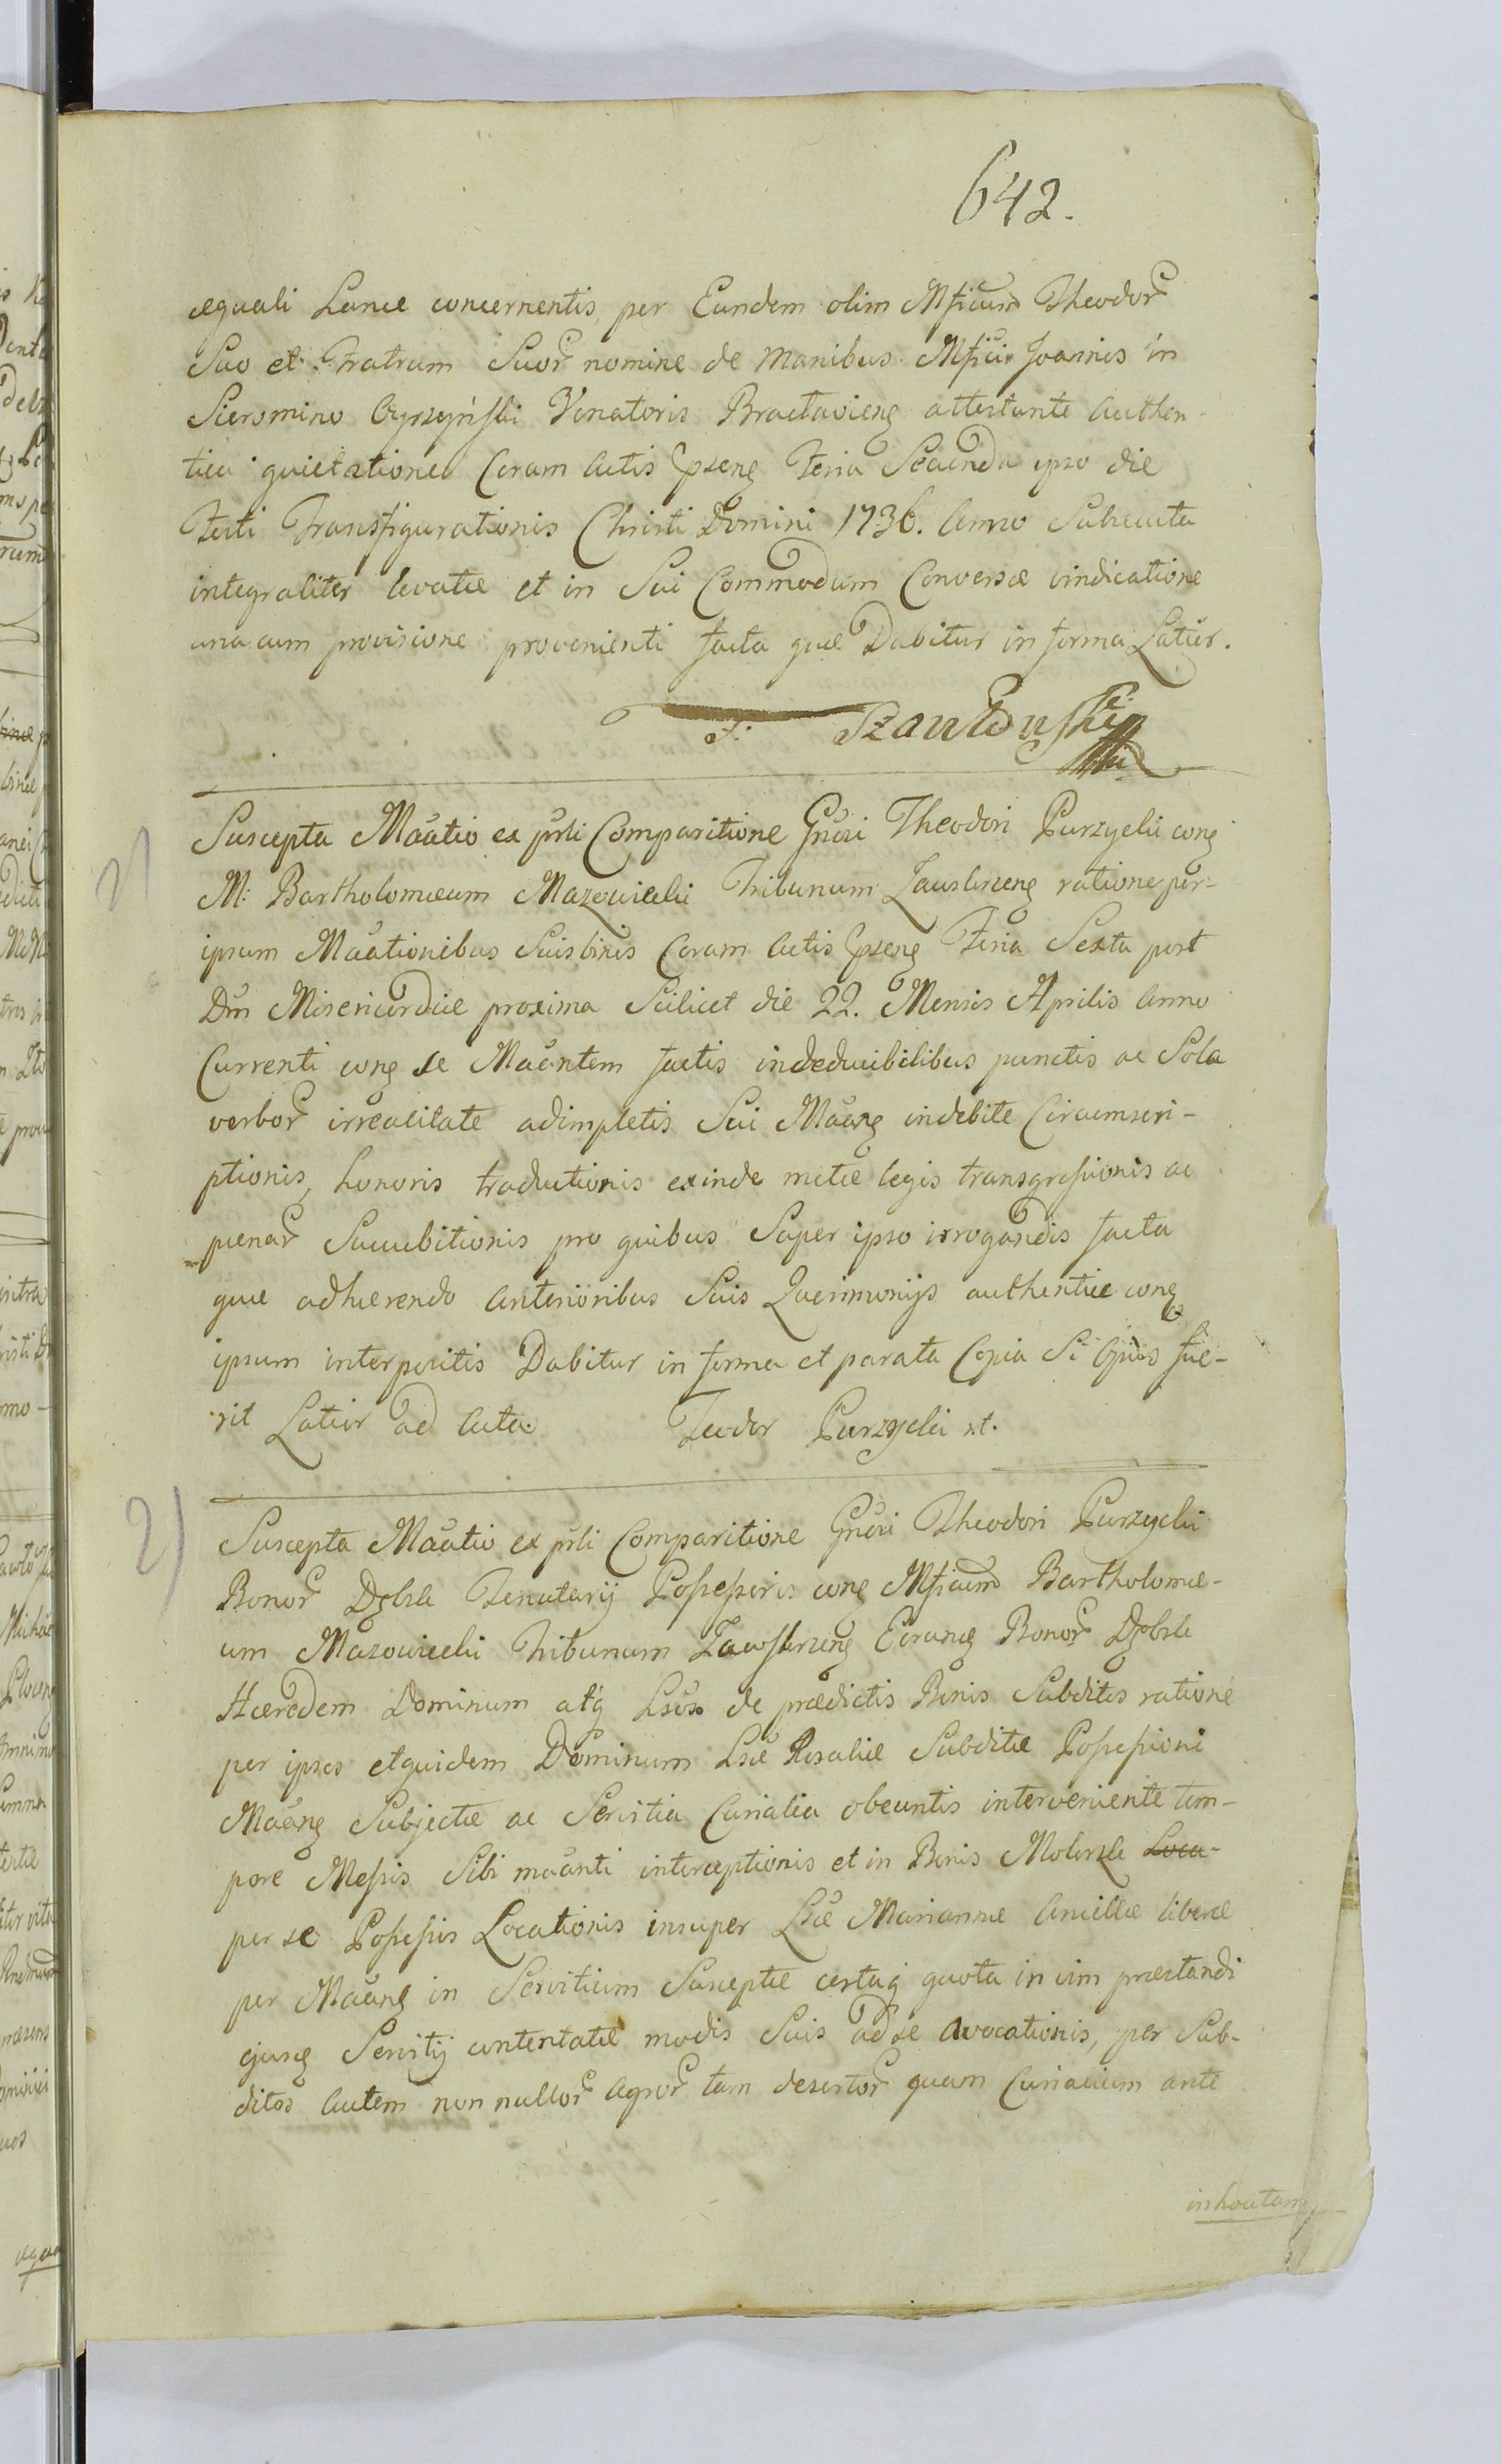 642.
æquali Lance concernentis, per Eundem olim Mficum Theodor
Suo et Fratrum Suor nomine de Manibus Mfici Joannis in
Sieromino Venatoris Braclaviens attestante Authen-
tica quietatione Coram Actis Feria Secunda ipso die
Festi Transfigurationis Christi Domini 1736. Anno Subsecuta
integraliter levatæ et in Sui Commodum Conversæ vindicatione
una cum provisione provenienti facta quæ Dabitur in forma Latiûs.
Szawłowski
2)
Suscepta Maãtio ex prli Comparitione Gnosi Theodori Purzycki cong
M: Bartholomæum Mazowiecki Tribunum Zawskrzeng ratione per
ipsum Maãtionibus Suis binis Coram Actis Feria Sexta post
Dm Misericordiæ proxima Scilicet die 22. Mensis Aprilis Anno
Currenti cong se Maãntem factis indeducibilibus punctis ac Sola
verbor irrealitate adimpletis Sui Maãng indebite Circumscri-
ptionis, honoris traductionis exinde metæ legis transgressionis ac
pænar Succubitionis pro quibus Super ipso irrogandis facta
quæ adhærendo Anterioribus Suis Querimonijs authenticæ cong
ipsum interpositis Dabitur in forma et parata Copia Si Opus fue-
rit Latior ad Acta. Teodor Purzycki
2)
Suscepta Maãtio ex prli Comparitione Gnosi Theodori Purzycki
Bonor Tenutarij Possessoris cong Mficum Bartholomæ-
um Mazowiecki Tribunum Zawskrzeng Eorung Bonor
Hæredem Dominum atq de prædictis Bonis Subditos ratione
per ipsos etquidem Dominum Rosaliæ Subditæ Possessioni
Maãng Subjectæ ac Servitia Curialia obeuntis interveniente tem-
pore Messis Sibi maãnti interceptionis et in Bonis Loca-
per se Possessis Locationis insuper Mariannæ Ancillæ liberæ
per Maãng in Servitium Susceptæ certaq quota in vim præstandi
ejusg Servitij contentatæ modis Suis ad se Avocationis, per Sub-
ditos Autem non nullor Agror tam desertor quam Curialium ante
inhoatam